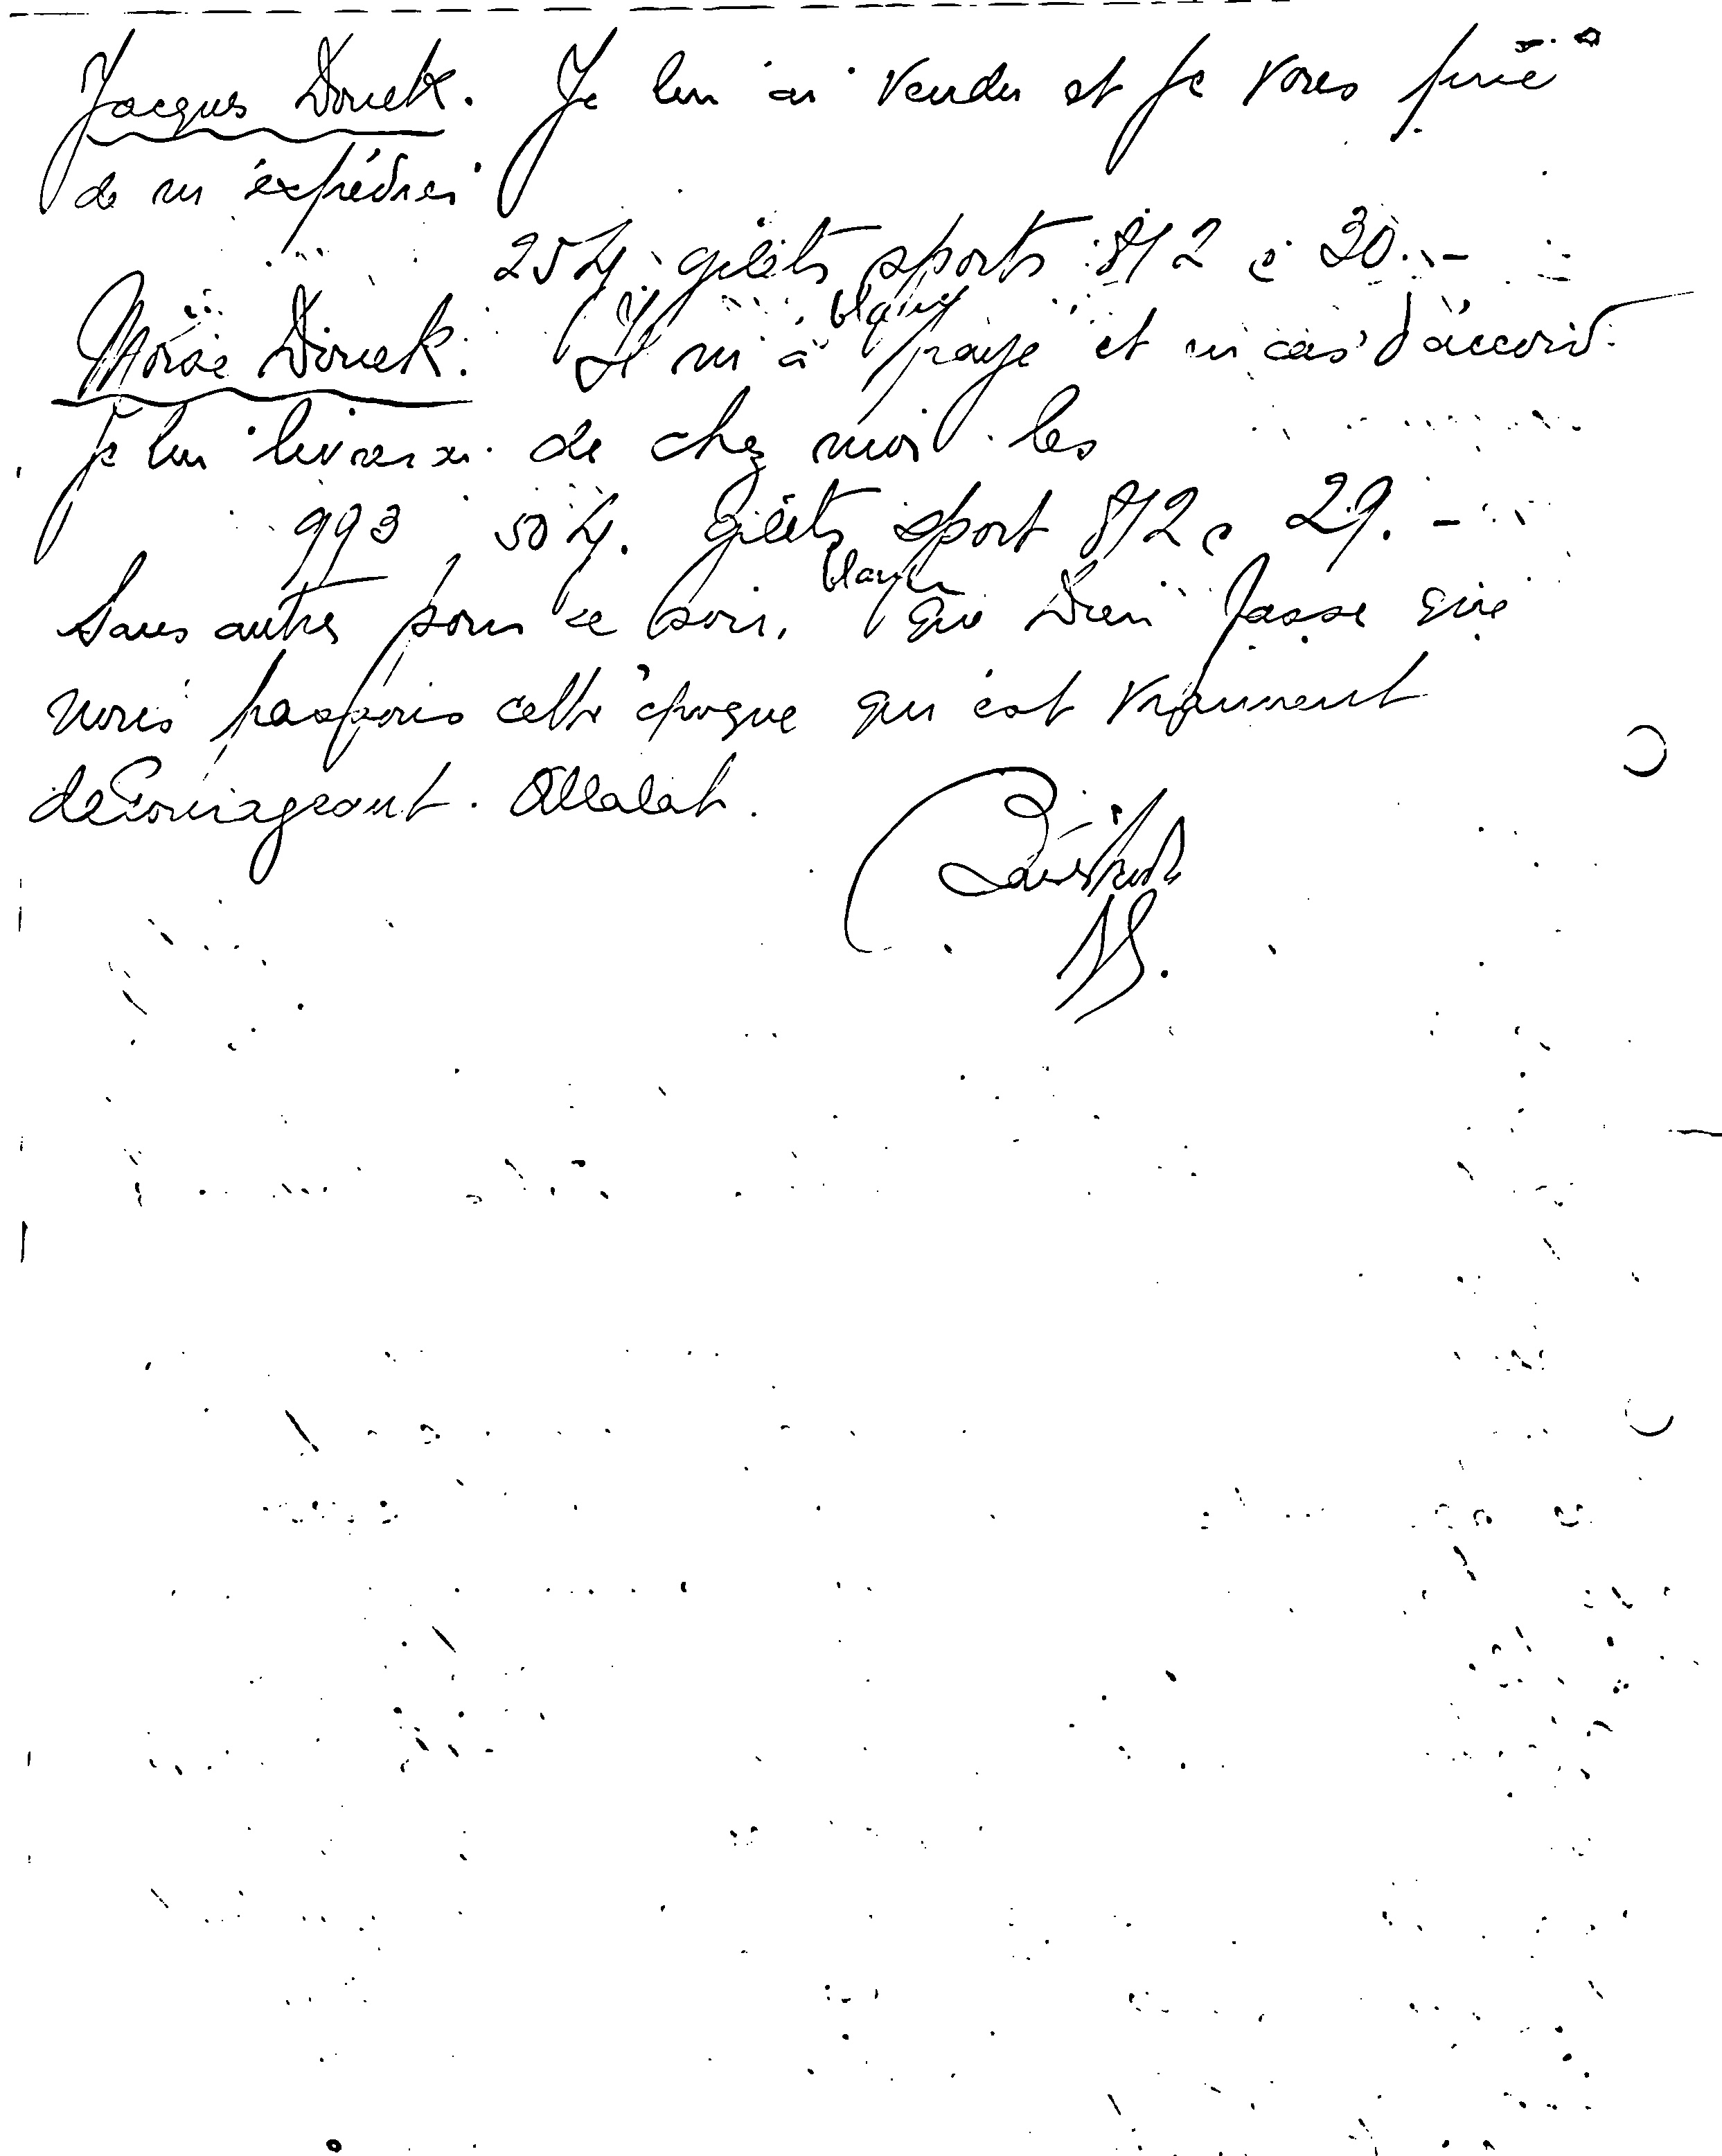 Jacques Douek. Je lui ai vendu et je vous prie
de m'expédier
25 dz gilets sports 812 à 30.-
blancs
Moise Douek. Il m'a payé et en cas d'accord
je lui livrerai de chez moi les
993 50 dz. gilets sport 812 à 29.-
blancs
Sans autres pour ce soir. Que Dieu fasse que
nous passions cette époque qui est vraiment
decourageant. Allalah.